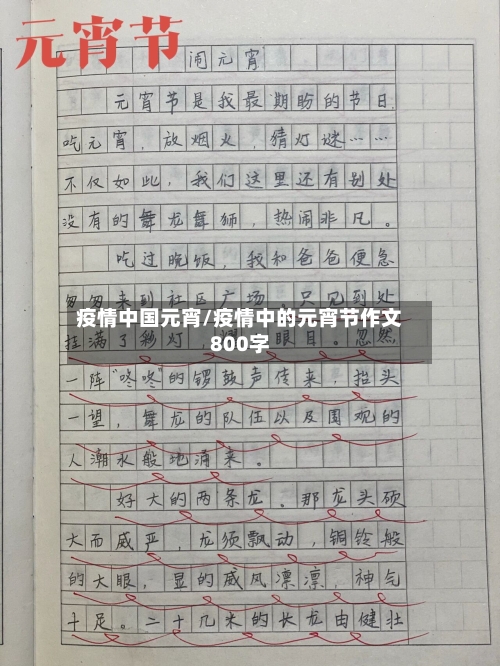 元宵节
闹元宵
元宵节是我最期盼的节日,
吃元宵,放烟火,猜灯谜……
不仅如此,我们这里还有别处
没有的舞龙舞狮,热闹非凡。
吃过晚饭,我和爸爸便急
匆匆来到社区广场,只见到处
疫情中国元宵/疫情中的元宵节作文
800字
挂满了彩灯,耀眼目。忽然
一阵“咚咚”的锣鼓声传来,抬头
一望,舞龙的队伍以及围观的
人潮水般地涌来。
好大的两条龙。那龙头硕
大而威严,龙须飘动,铜铃般
的大眼,显的威风凛凛,神气
十足。二十几米的长龙由健壮